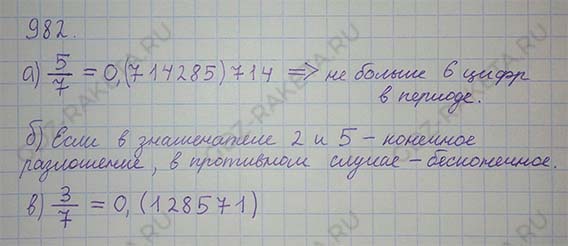 982.
а) 5/7 = 0,(714285)714 => не больше 6 цифр
в периоде.
б) Если в знаменателе 2 и 5 - конечное
разложение, в противном случае - бесконечное.
в) 3/7 = 0,(128571)